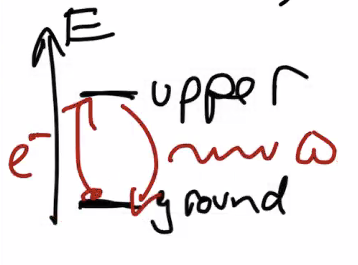 E
upper
e⁻
ω
ground